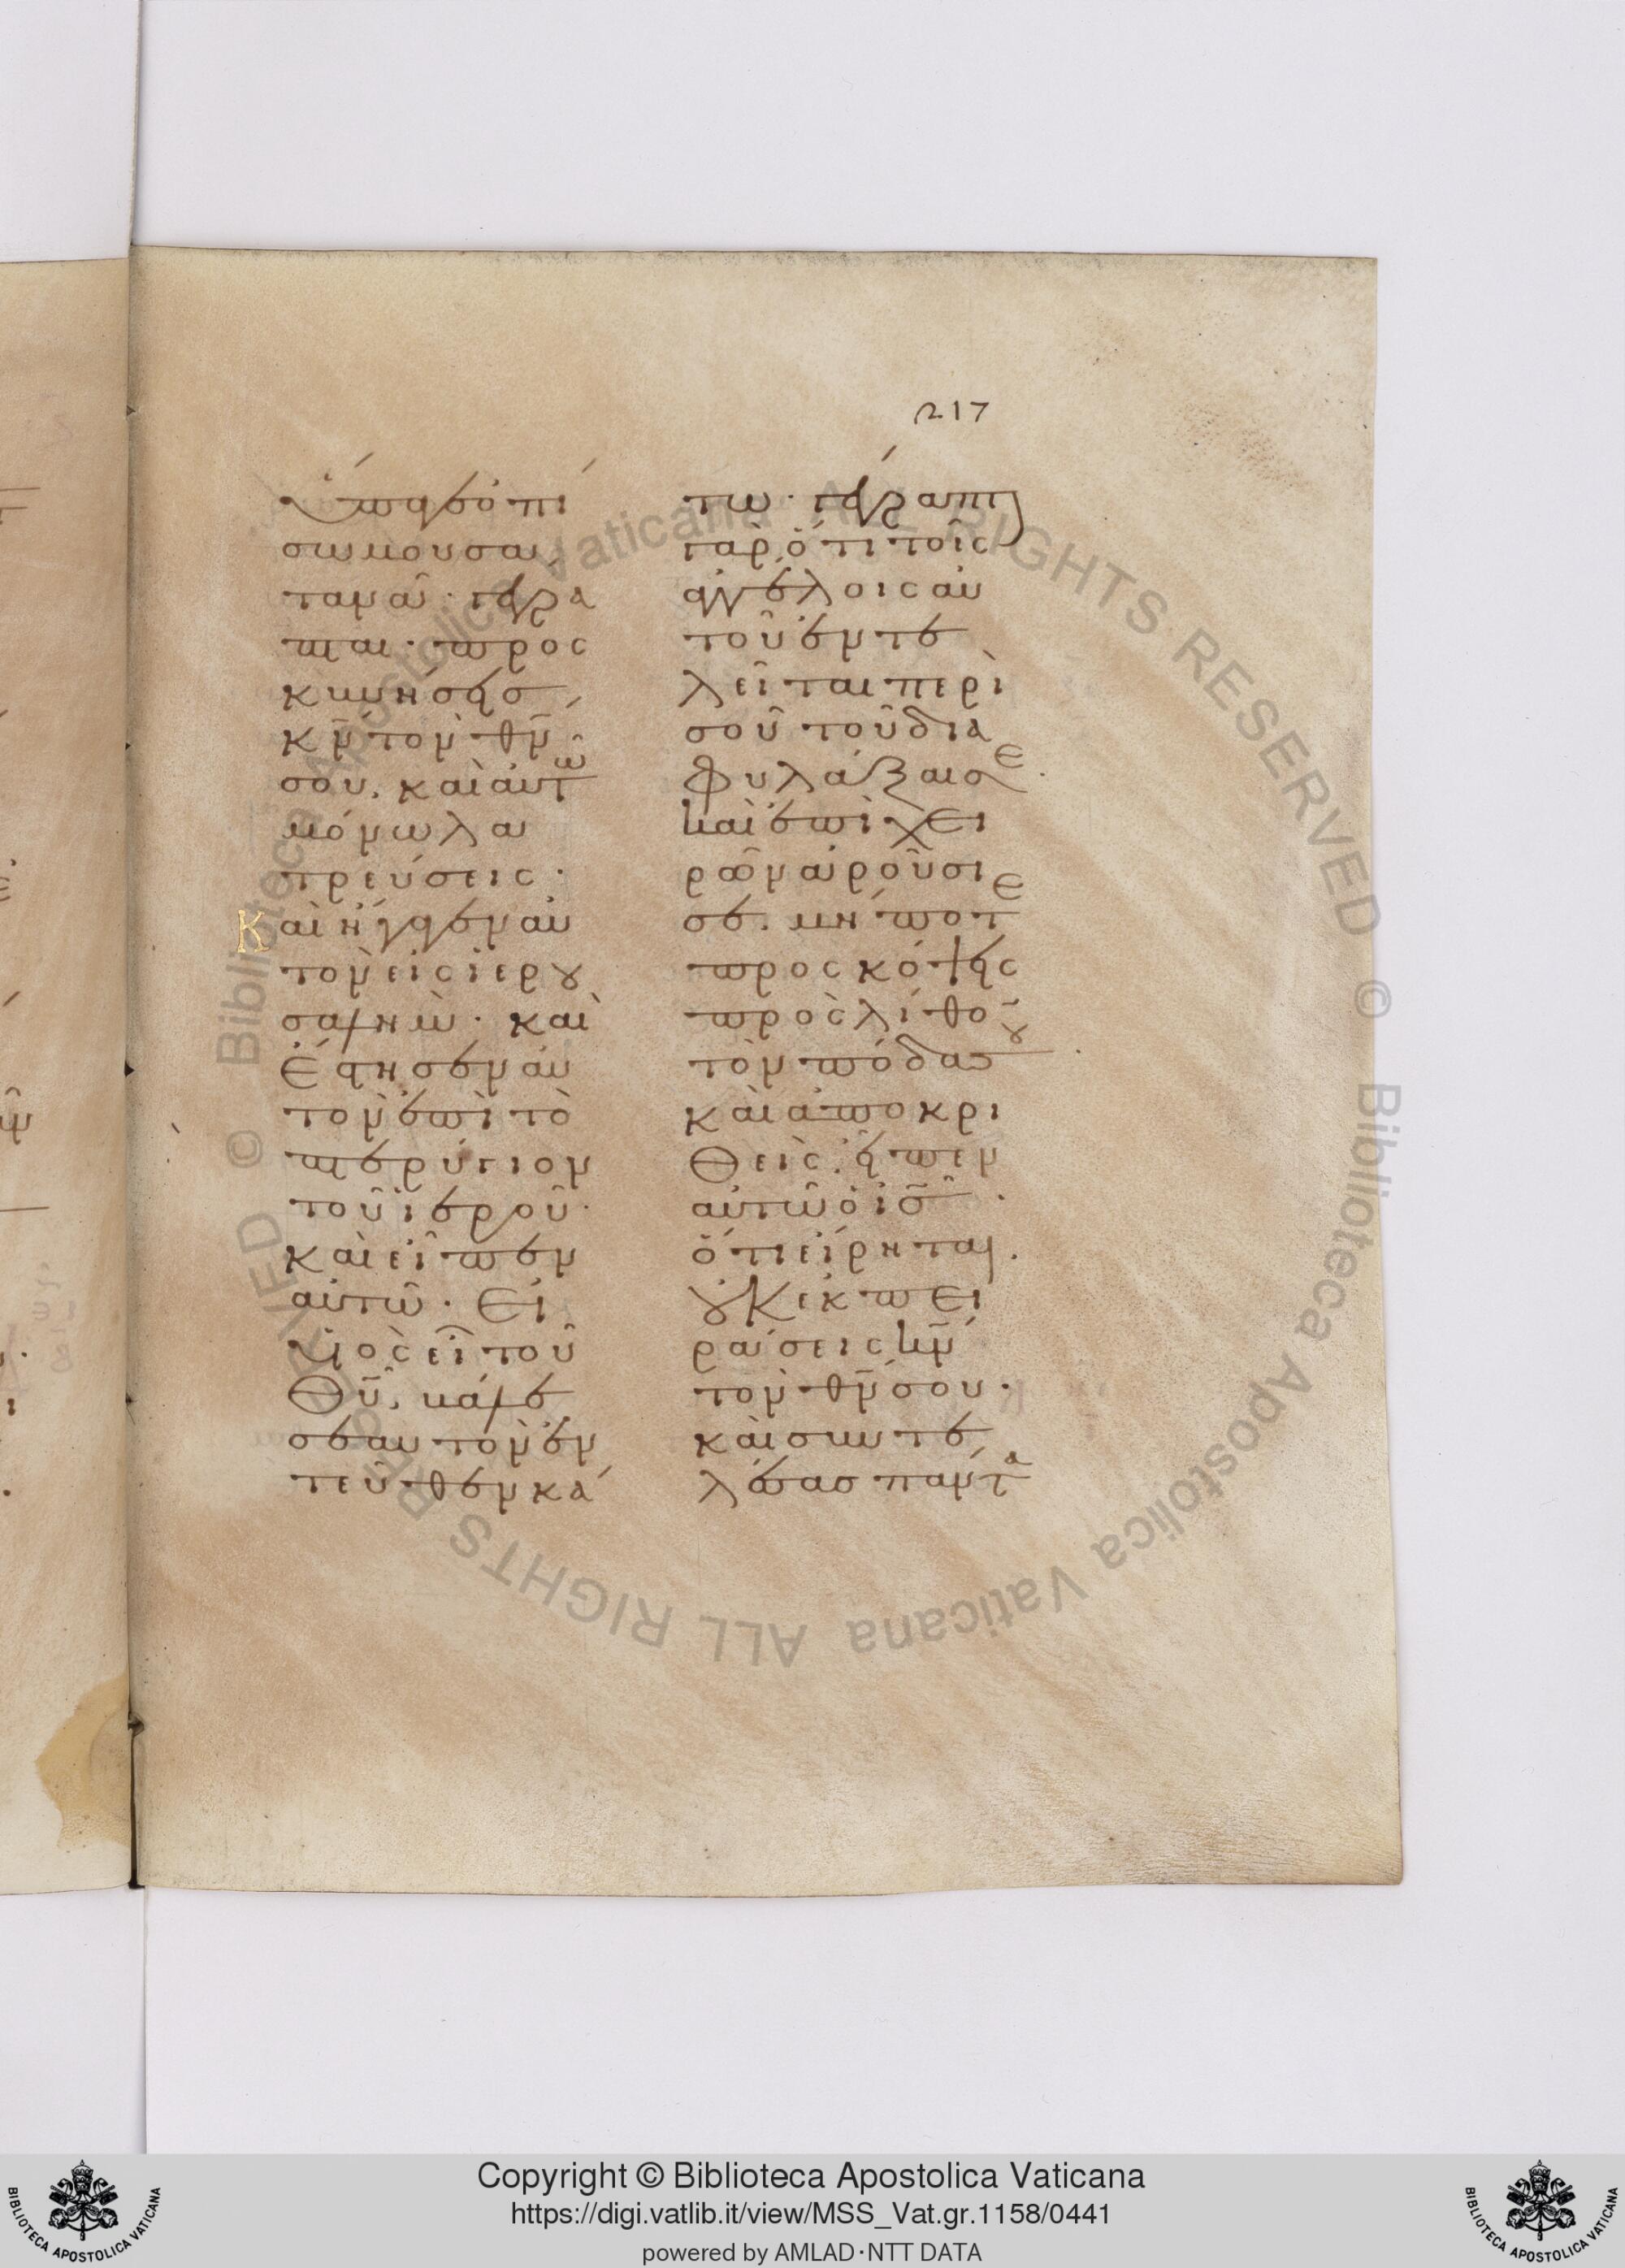 217
ὕπαγε ὀπί
σω μου σα
τανᾶ· γέγρα
πται· προσ
κυνήσεις
κ̅ν̅ τὸν θ̅ν̅
σου, καὶ αὐτῶ
μόνω λα
τρεύσεις·
Καὶ ἤγαγεν αὐ
τὸν εἰς ἱερου
σαλήμ· καὶ
ἔστησεν αὐ
τὸν ἐπὶ τὸ
πτερύγιον
τοῦ ἱεροῦ·
καὶ εἶπεν
αὐτῶ· Εἰ
υἱὸς εἶ τοῦ
θ̅υ̅, βάλε
σεαυτὸν ἐν
τεῦθεν κά
τω· γέγραπται
γὰρ ὅτι τοῖς
ἀγγέλοις αὐ
τοῦ ἐντε
λεῖται περὶ
σοῦ τοῦ δια
φυλάξαι σε·
καὶ ἐπὶ χει
ρῶν ἀροῦσι
σε. μήποτε
προσκόψης
πρὸς λίθον
τὸν πόδα σου·
καὶ ἀποκρι
θεὶς, εἶπεν
αὐτῶ ὁ ι̅σ̅·
ὅτι εἴρηται.
οὐκ ἐκπει
ράσεις κ̅ν̅
τὸν θ̅ν̅ σου·
καὶ συντε
λέσας πάντα
Copyright © Biblioteca Apostolica Vaticana
https://digi.vatlib.it/view/MSS_Vat.gr.1158/0441
powered by AMLAD·NTT DATA
BIBLIOTECA APOSTOLICA VATICANA
BIBLIOTECA APOSTOLICA VATICANA
© Biblioteca Apostolica Vaticana ALL RIGHTS RESERVED © Biblioteca Apostolica Vaticana ALL RIGHTS RESERVED